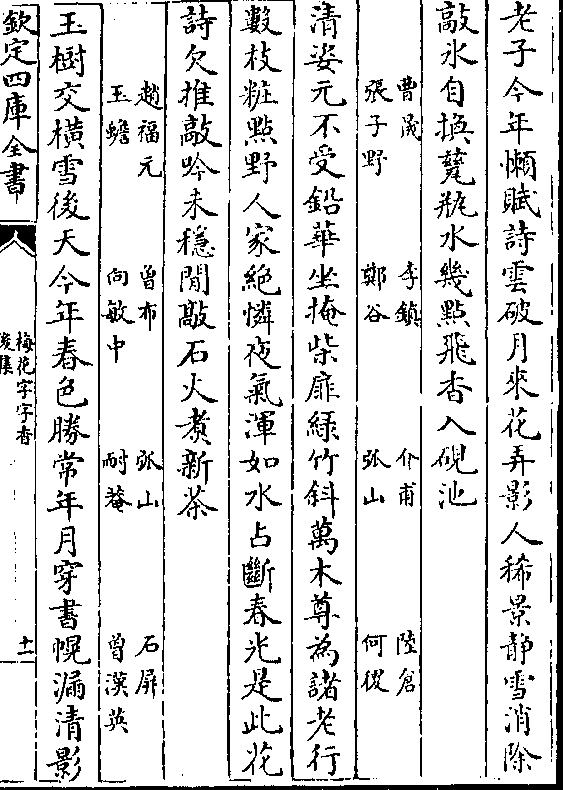 老子今年懶賦詩雲破月來花弄影人稀景静雪消除
敲氷自換甆瓶水幾點飛香入硯池
曹晟　李鎮　介甫　陸倉
張子野　鄭谷　弤山　何復
清姿元不受鉛華坐掩柴扉緑竹斜萬木尊為諸老行
數枝粧點野人家絶憐夜氣渾如水占斷春光是此花
詩欠推敲吟未穩閒敲石火煑新茶
趙福元　曾布　弤山　石屏
玉蟾　向敏中　耐菴　曾漢英
玉樹交橫雪後天今年春色勝常年月穿書幌漏清影
欽定四庫全書
梅花字字香
後集
十一